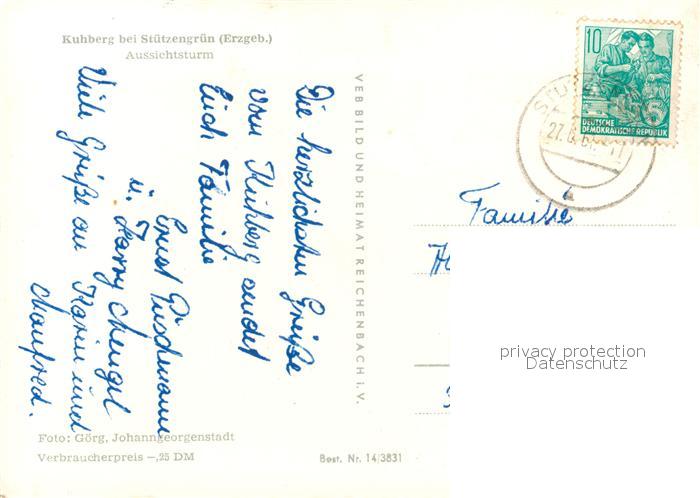 Kuhberg bei Stützengrün (Erzgeb.)
Aussichtsturm
Die herzlichsten Grüße
vom Kuhberg sendet
Euch Familie
Ernst Puschmann
u. Harry Mengel
Viele Grüße an Karin und
Manfred.
Foto: Görg, Johanngeorgenstadt
Verbraucherpreis –,25 DM
Best. Nr. 14/3831
VEB BILD UND HEIMAT REICHENBACH i. V.
10
DEUTSCHE
DEMOKRATISCHE REPUBLIK
Familie
privacy protection
Datenschutz